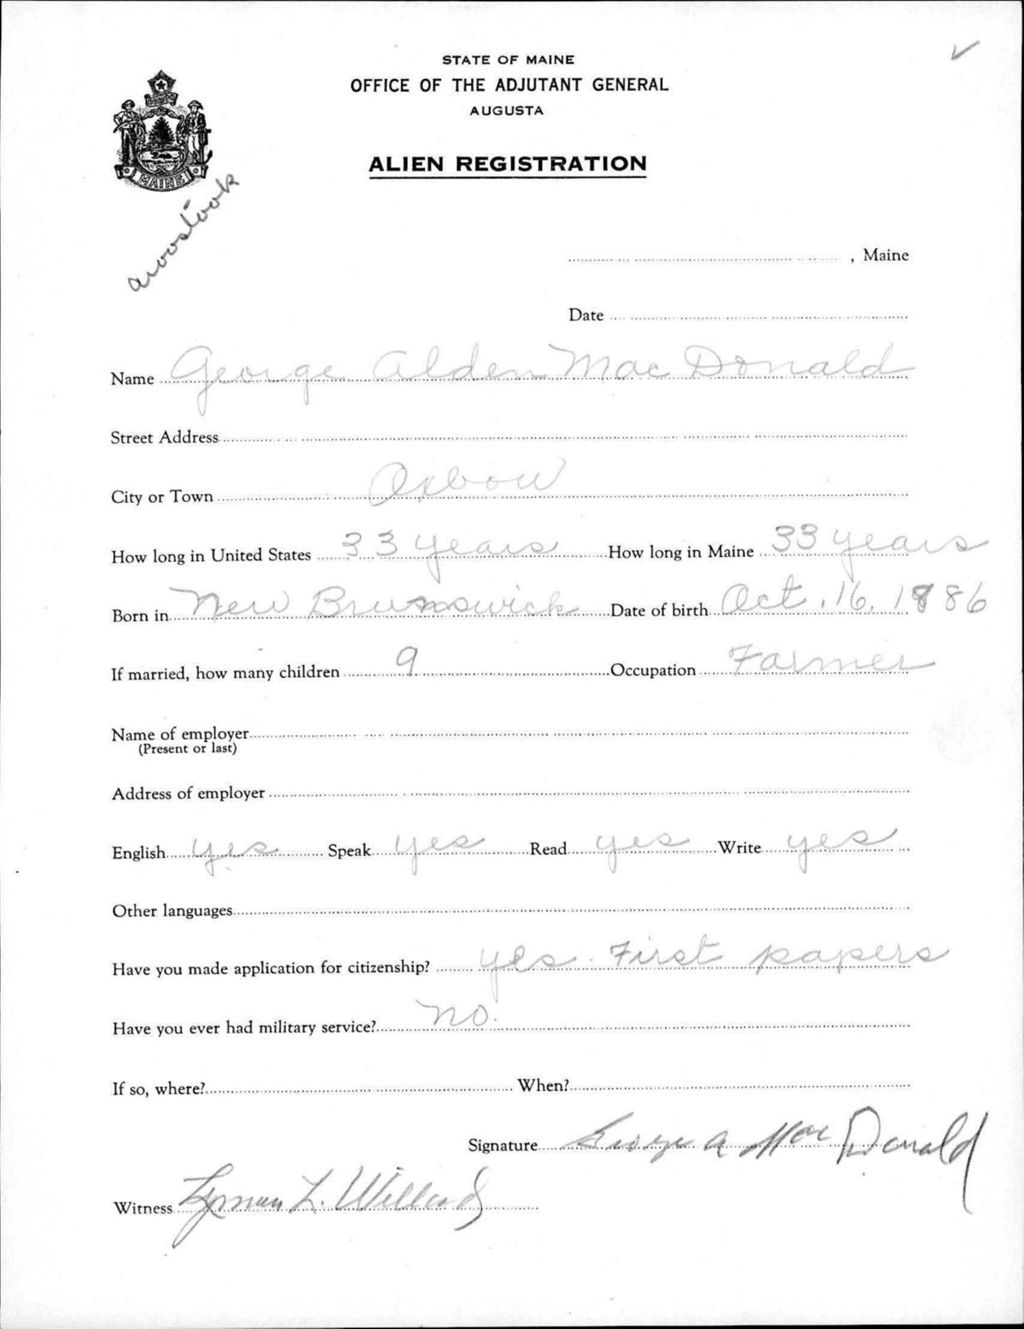 STATE OF MAINE
OFFICE OF THE ADJUTANT GENERAL
AUGUSTA
ALIEN REGISTRATION
MAINE
aroostook
, Maine
Date
Name George Alden MacDonald
Street Address
City or Town Oxbow
How long in United States 33 years How long in Maine 33 years
Born in New Brunswick Date of birth Oct. 16, 1886
If married, how many children 9 Occupation Farmer
Name of employer
(Present or last)
Address of employer
English yes Speak yes Read yes Write yes
Other languages
Have you made application for citizenship? yes. First papers
Have you ever had military service? no.
If so, where? When?
Signature George A MacDonald
Witness Lyman L. Willard